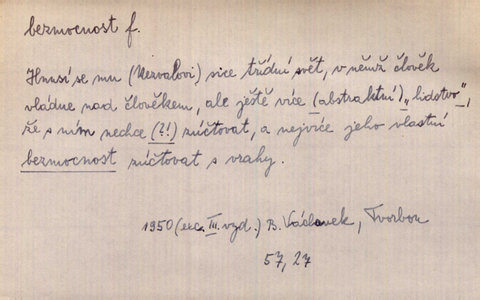 bezmocnost f.
Hnusí se mu (Nezvalovi) sice třídní svět, v němž člověk
vládne nad člověkem, ale ještě více (abstraktní) „lidstvo",
že s ním nechce (?!) zúčtovat, a nejvíce jeho vlastní
bezmocnost zúčtovat s vrahy.
1950 (exc. III. vyd.) B. Václavek, Tvorbou
57, 27